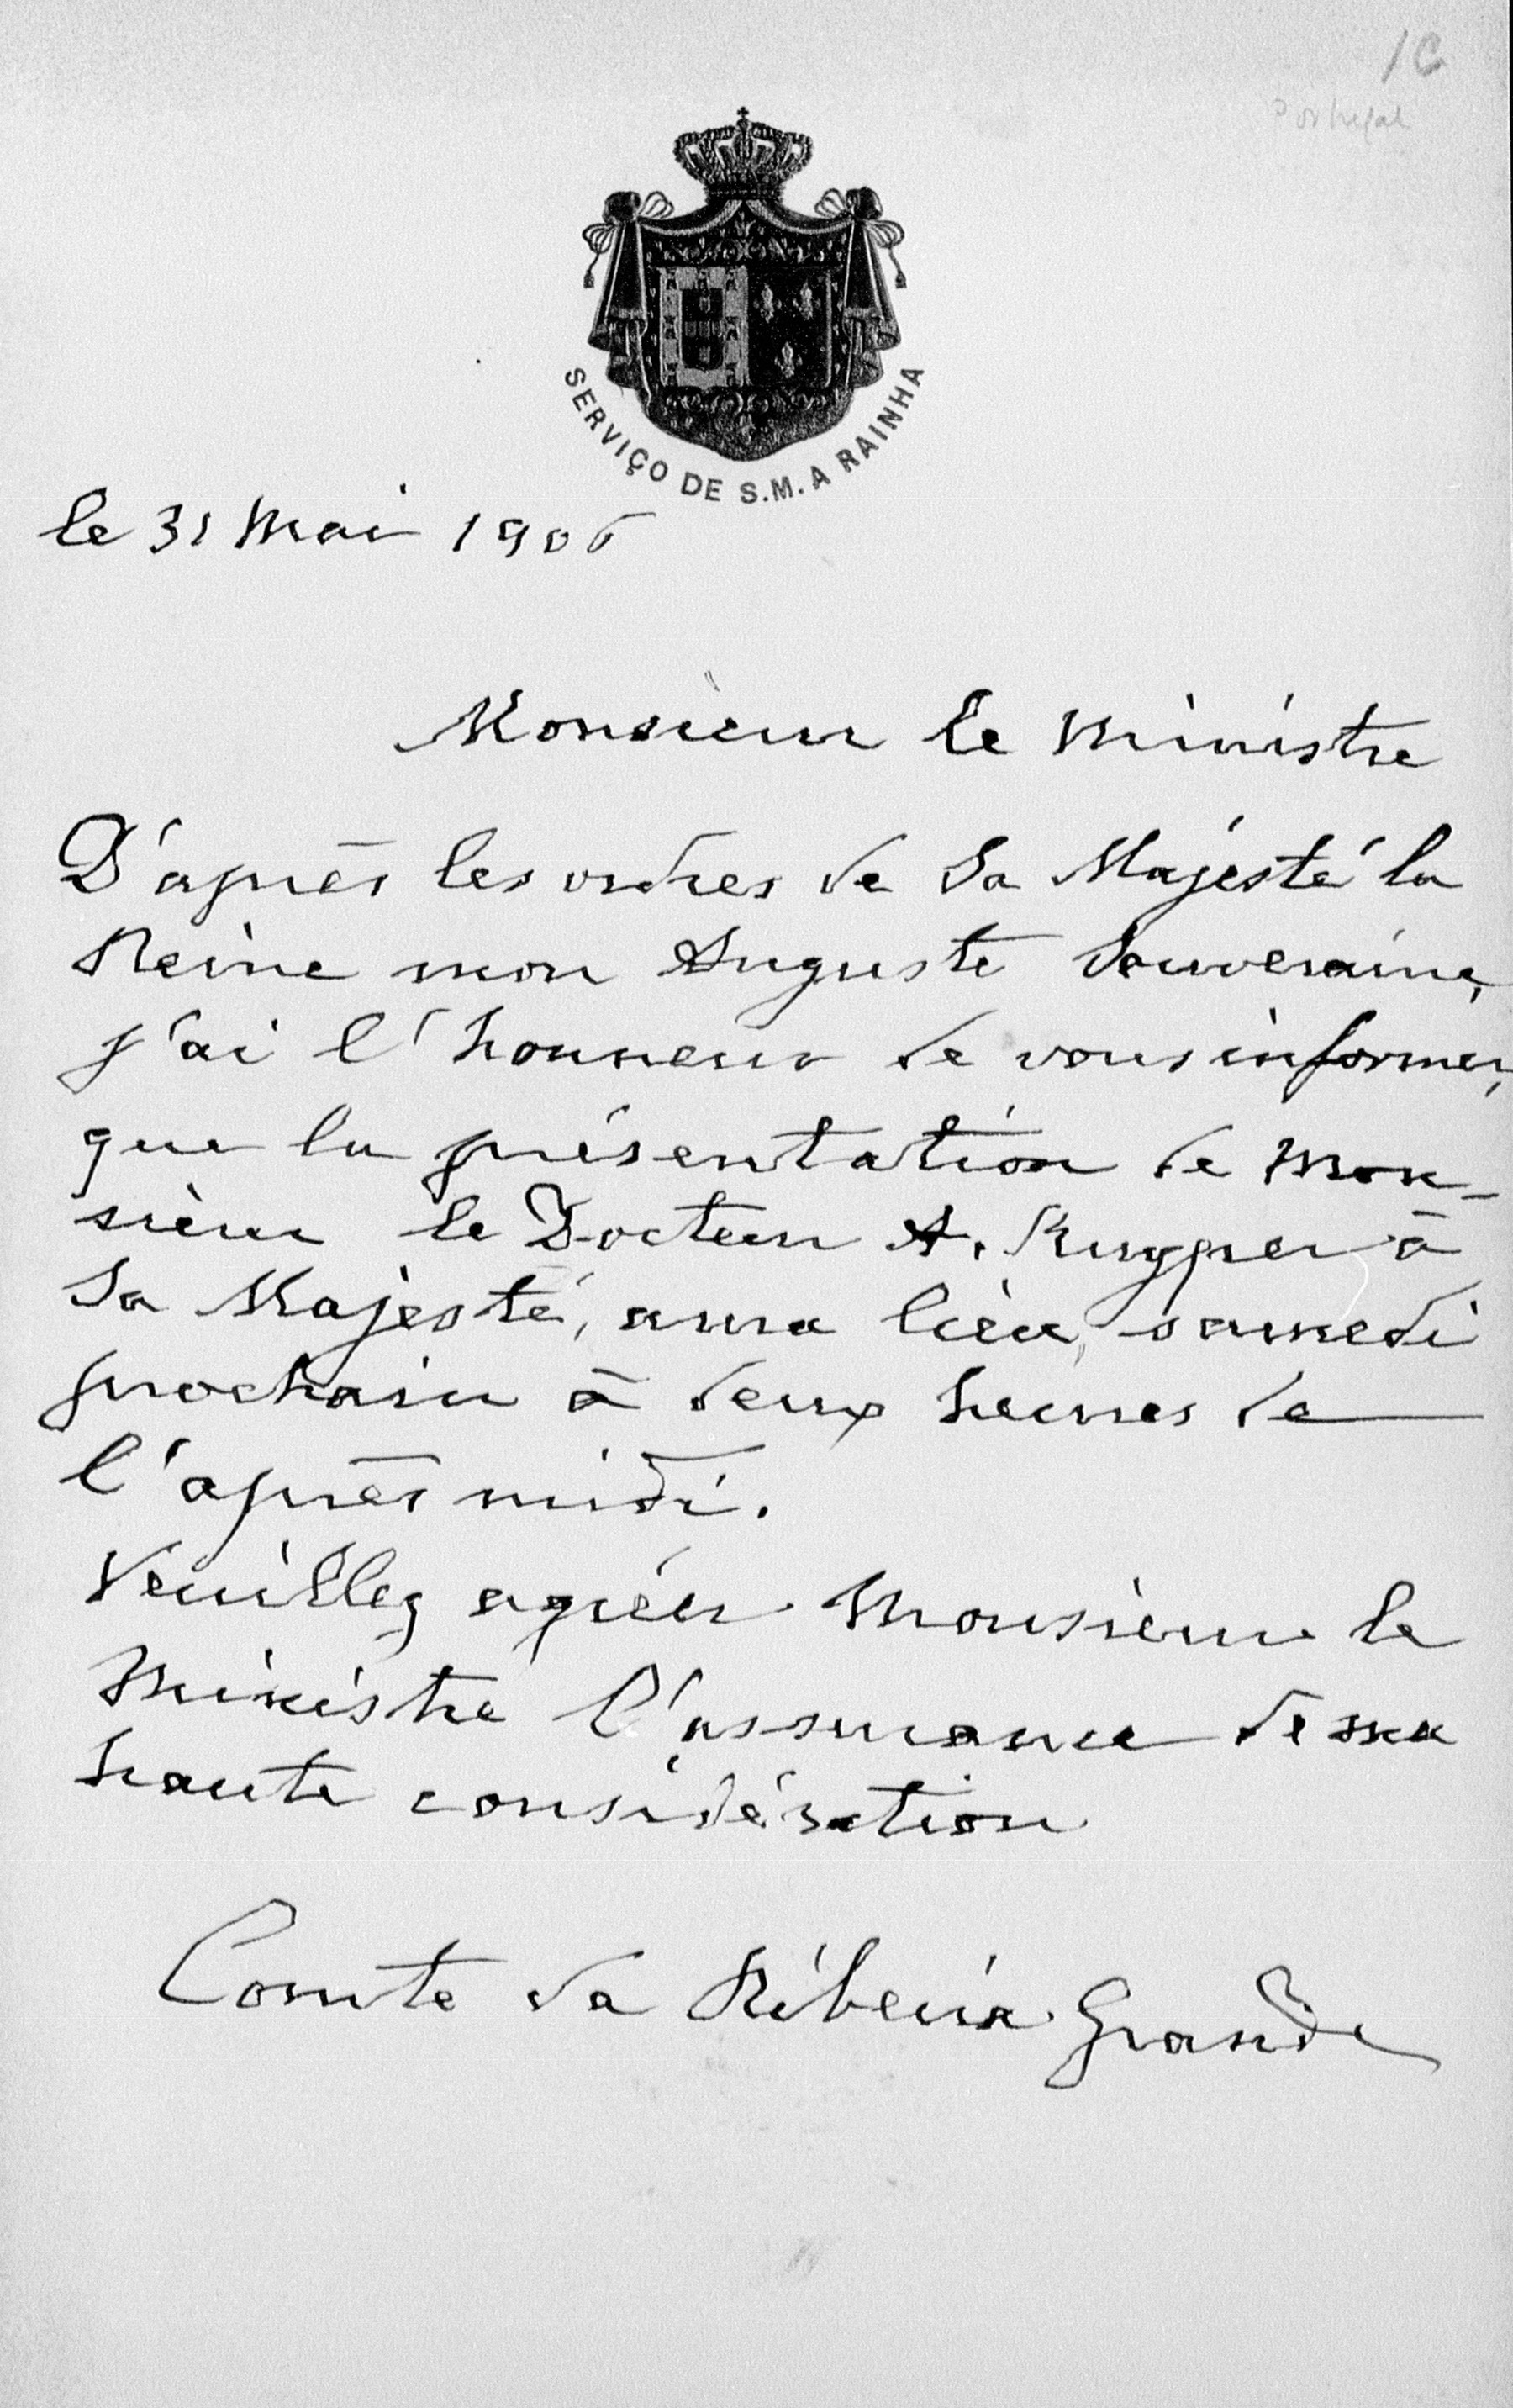 1C
Portugal
SERVIÇO DE S.M. A RAINHA
le 31 Mai 1906
Monsieur le Ministre
D'après les ordres de Sa Majesté la
Reine mon Auguste Souveraine,
j'ai l'honneur de vous informer,
que la présentation de Mon-
sieur le Docteur A. Kuyper à
Sa Majesté, aura lieu, samedi
prochain à deux heures de
l'après midi.
Veuillez agréer Monsieur le
Ministre l'assurance de ma
haute considération
Comte da Ribeira Grande